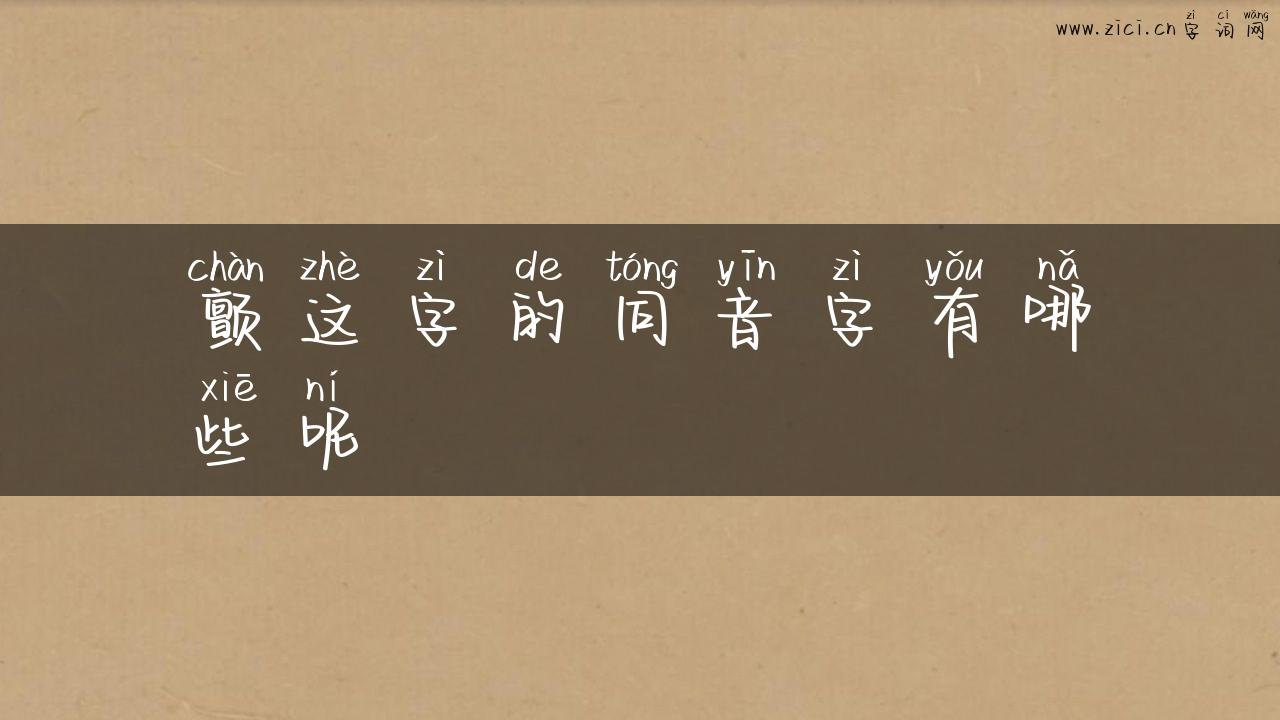 zì cí wǎng
www.zici.cn 字 词 网
chàn zhè zì de tóng yīn zì yǒu nǎ
颤 这 字 的 同 音 字 有 哪
xiē ní
些 呢